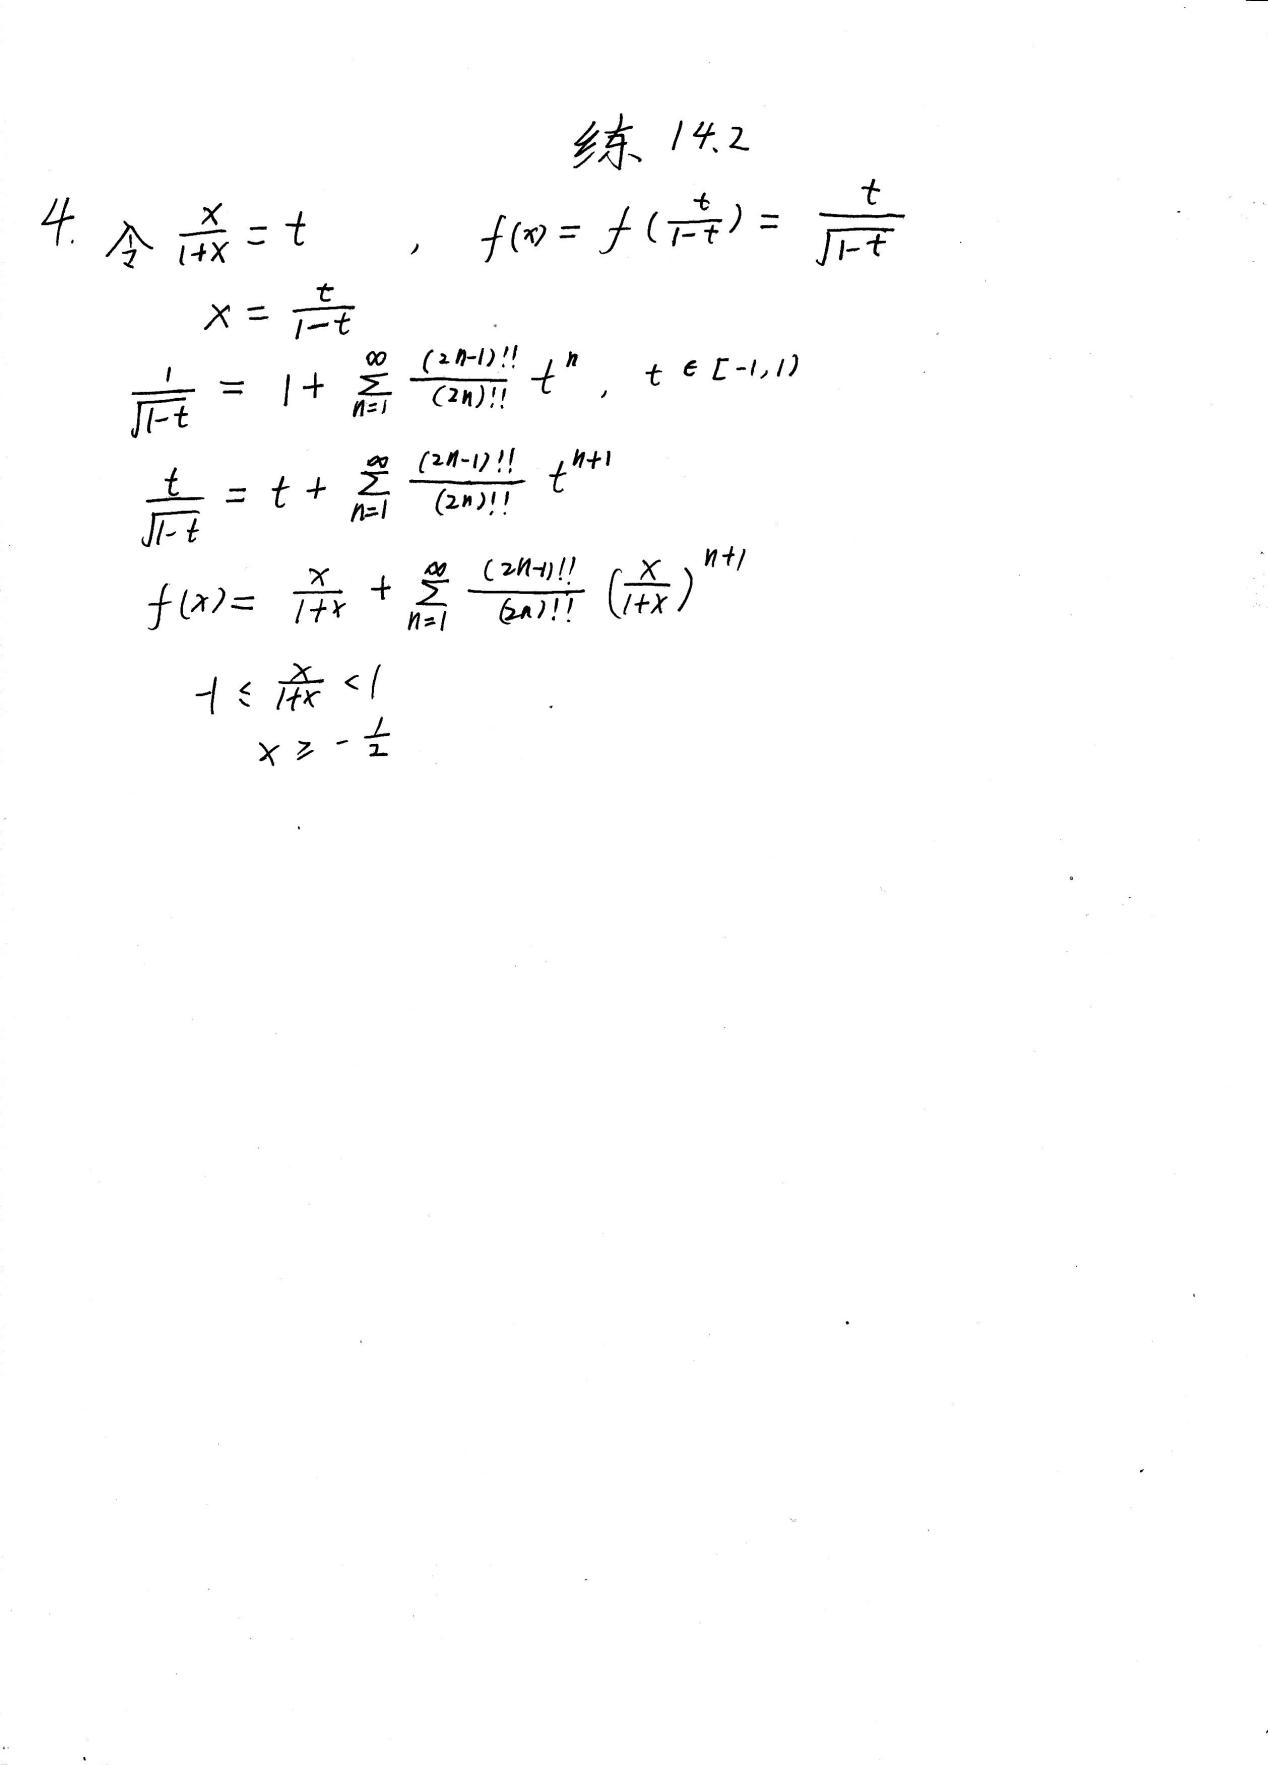 练 14.2
4. 令 \frac{x}{1+x} = t , f(x) = f(\frac{t}{1-t}) = \frac{t}{\sqrt{1-t}}
x = \frac{t}{1-t}
\frac{1}{\sqrt{1-t}} = 1 + \sum_{n=1}^{\infty} \frac{(2n-1)!!}{(2n)!!} t^n , t ∈ [-1,1)
\frac{t}{\sqrt{1-t}} = t + \sum_{n=1}^{\infty} \frac{(2n-1)!!}{(2n)!!} t^{n+1}
f(x) = \frac{x}{1+x} + \sum_{n=1}^{\infty} \frac{(2n-1)!!}{(2n)!!} (\frac{x}{1+x})^{n+1}
-1 ≤ \frac{x}{1+x} < 1
x ≥ -\frac{1}{2}